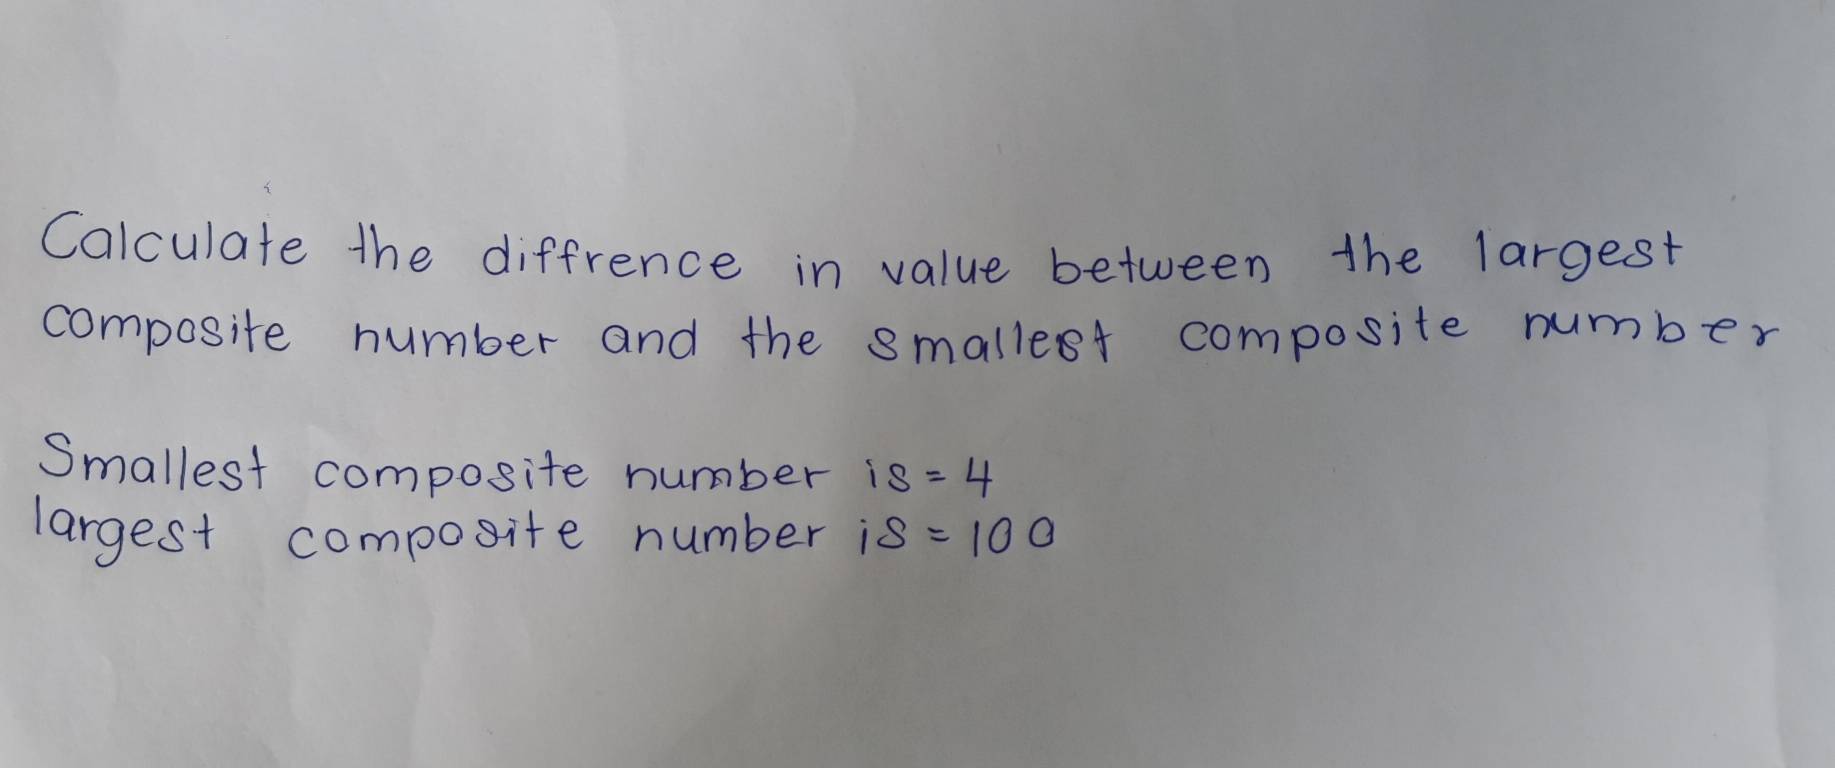 Calculate the diffrence in value between the largest
composite number and the smallest composite number
Smallest composite number is = 4
largest composite number is = 100